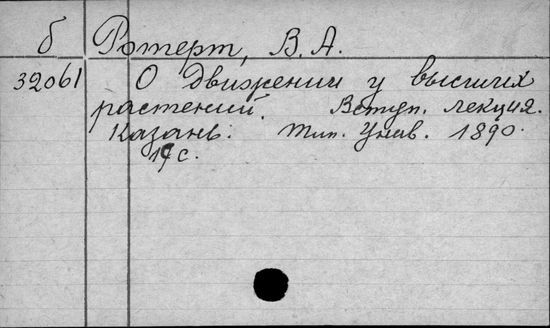 б Ротерт, В. А.
32061 О движении у высших
растений. Вступ. лекция.
Казань. Тип. Унив. 1890.
19 с.